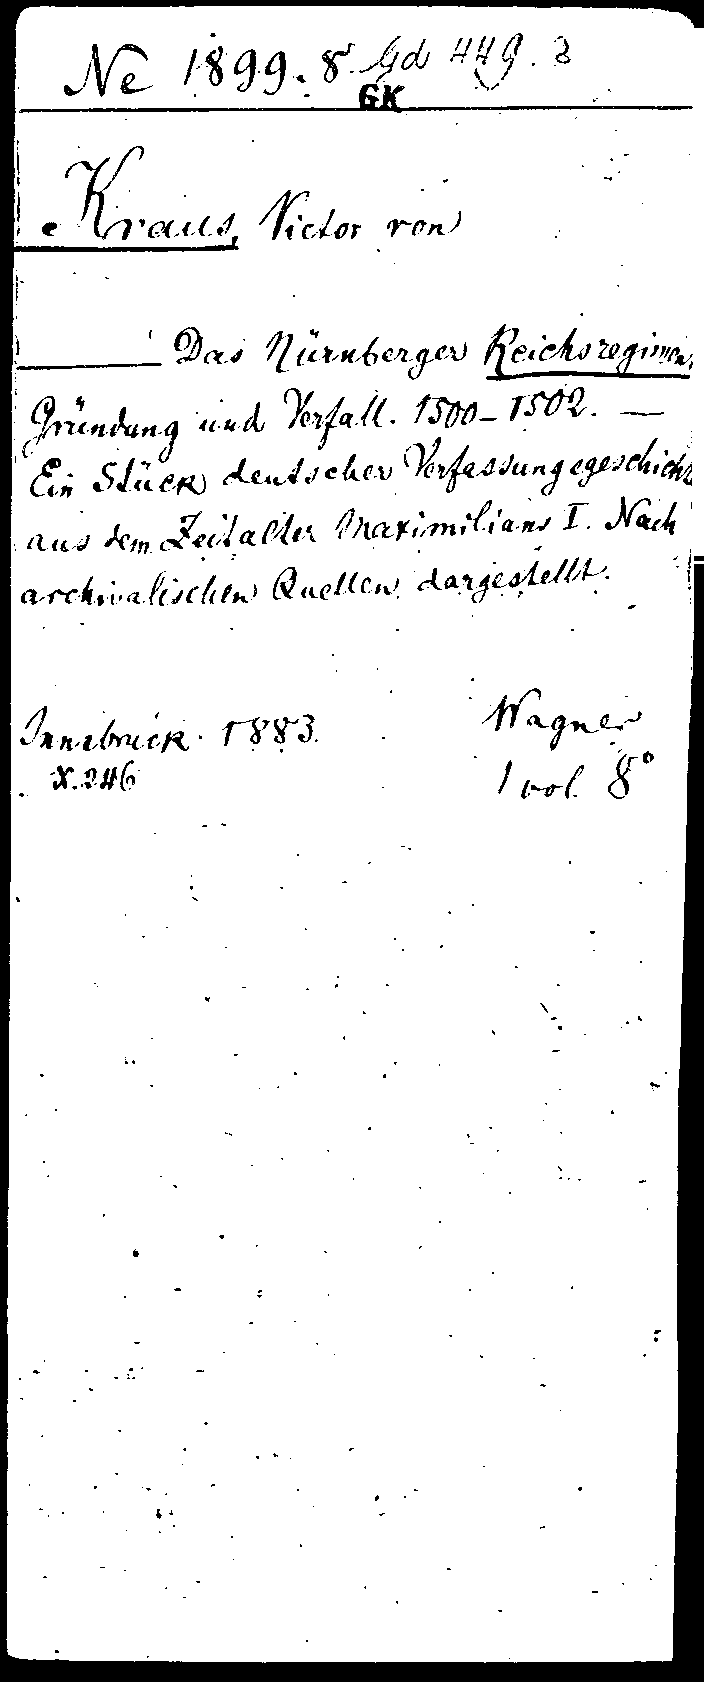 Ne 1899.8. Gd 449.3
GK
Kraus, Victor von
——— Das Nürnberger Reichsregimen
Gründung und Verfall. 1500–1502. —
Ein Stück deutscher Verfassungsgeschicht
aus dem Zeitalter Maximilians I. Nach
archivalischen Quellen dargestellt.
Innsbruck. 1883. Wagner
X.246 1 vol. 8°